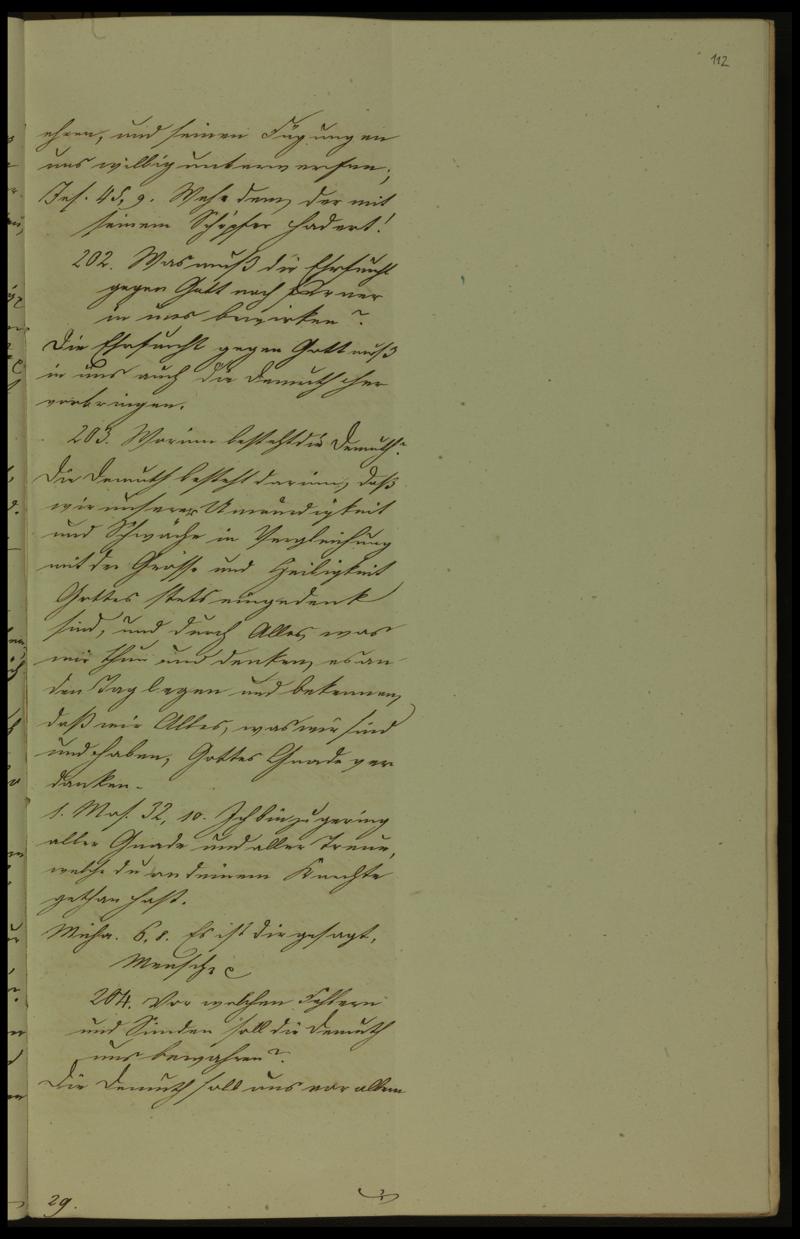 112
ehren, und seinen Fügungen
uns willig unterwerfen;
Jes. 45, 9. Wehe dem, der mit
seinem Schöpfer hadert!
202. Was muß die Ehrfurcht
gegen Gott noch ferner
in uns bewirken?
Die Ehrfurcht gegen Gott muß
in uns auch die Demuth her
vorbringen.
203. Worinn besteht die Demuth?
Die Demuth besteht darinn, daß
wir unserer Unwürdigkeit
und Schwäche in Vergleichung
mit der Grösse und Heiligkeit
Gottes stets eingedenk
sind, und durch Alles, was
wir thun und denken, es an
den Tag legen und bekennen,
daß wir Alles, was wir sind
und haben, Gottes Gnade ver
danken.
1. Mos. 32, 10. Ich bin zu gering
aller Gnade und aller Treue,
welche du an deinem Knechte
gethan hast.
Micha. 6, 8. Es ist dir gesagt,
Mensch,
204. Vor welchen Fehlern
und Sünden soll die Demuth
uns bewahren?
Die Demuth soll uns vor allem
29.